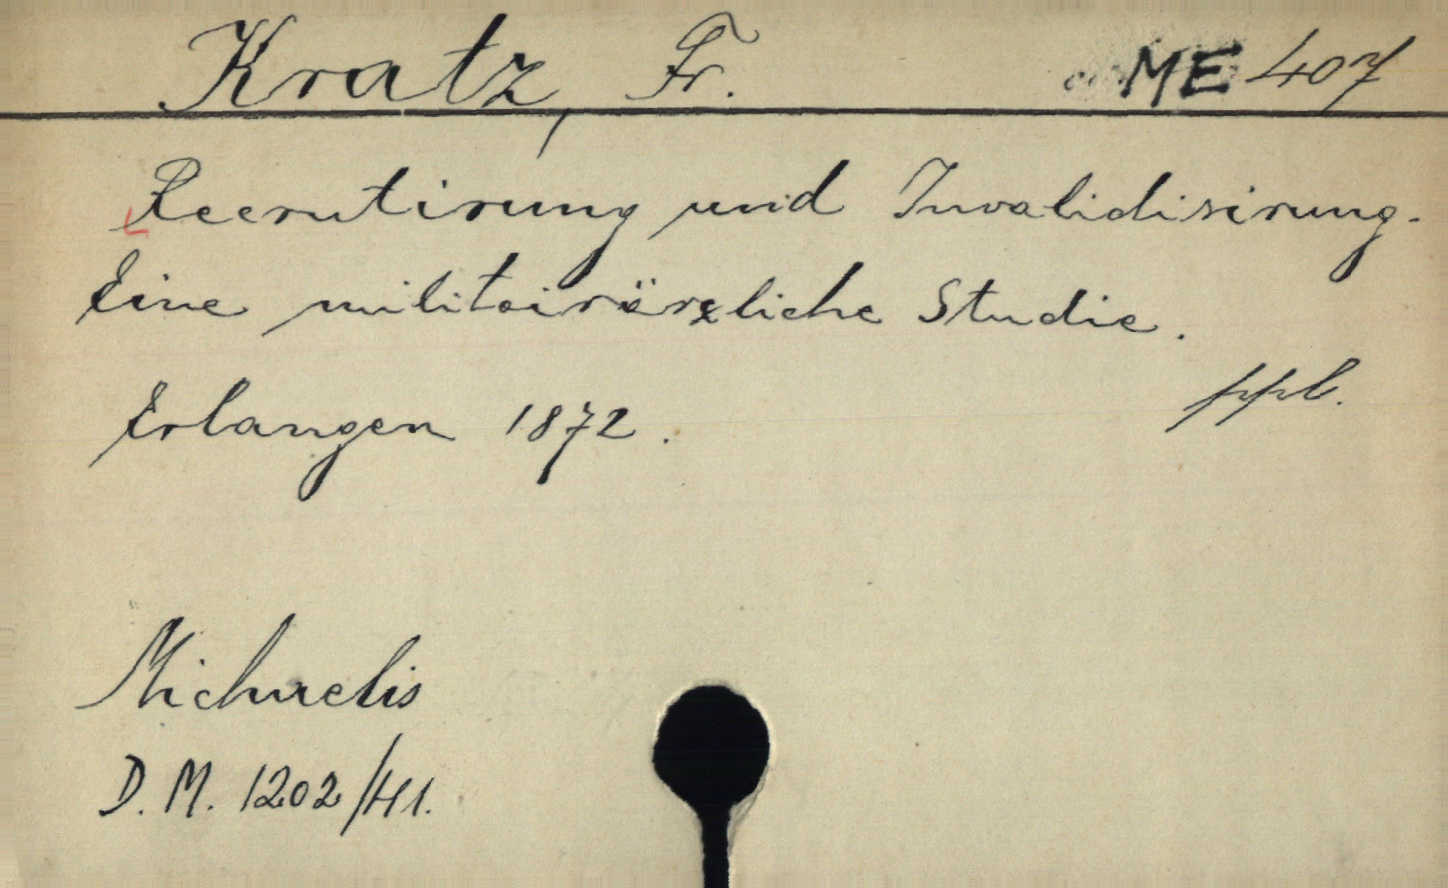 Kratz, Fr. ME 407
Recrutirung und Invalidisirung.
Eine militairärzliche Studie.
Erlangen 1872. ppb.
Michaelis
D. M. 1202/41.